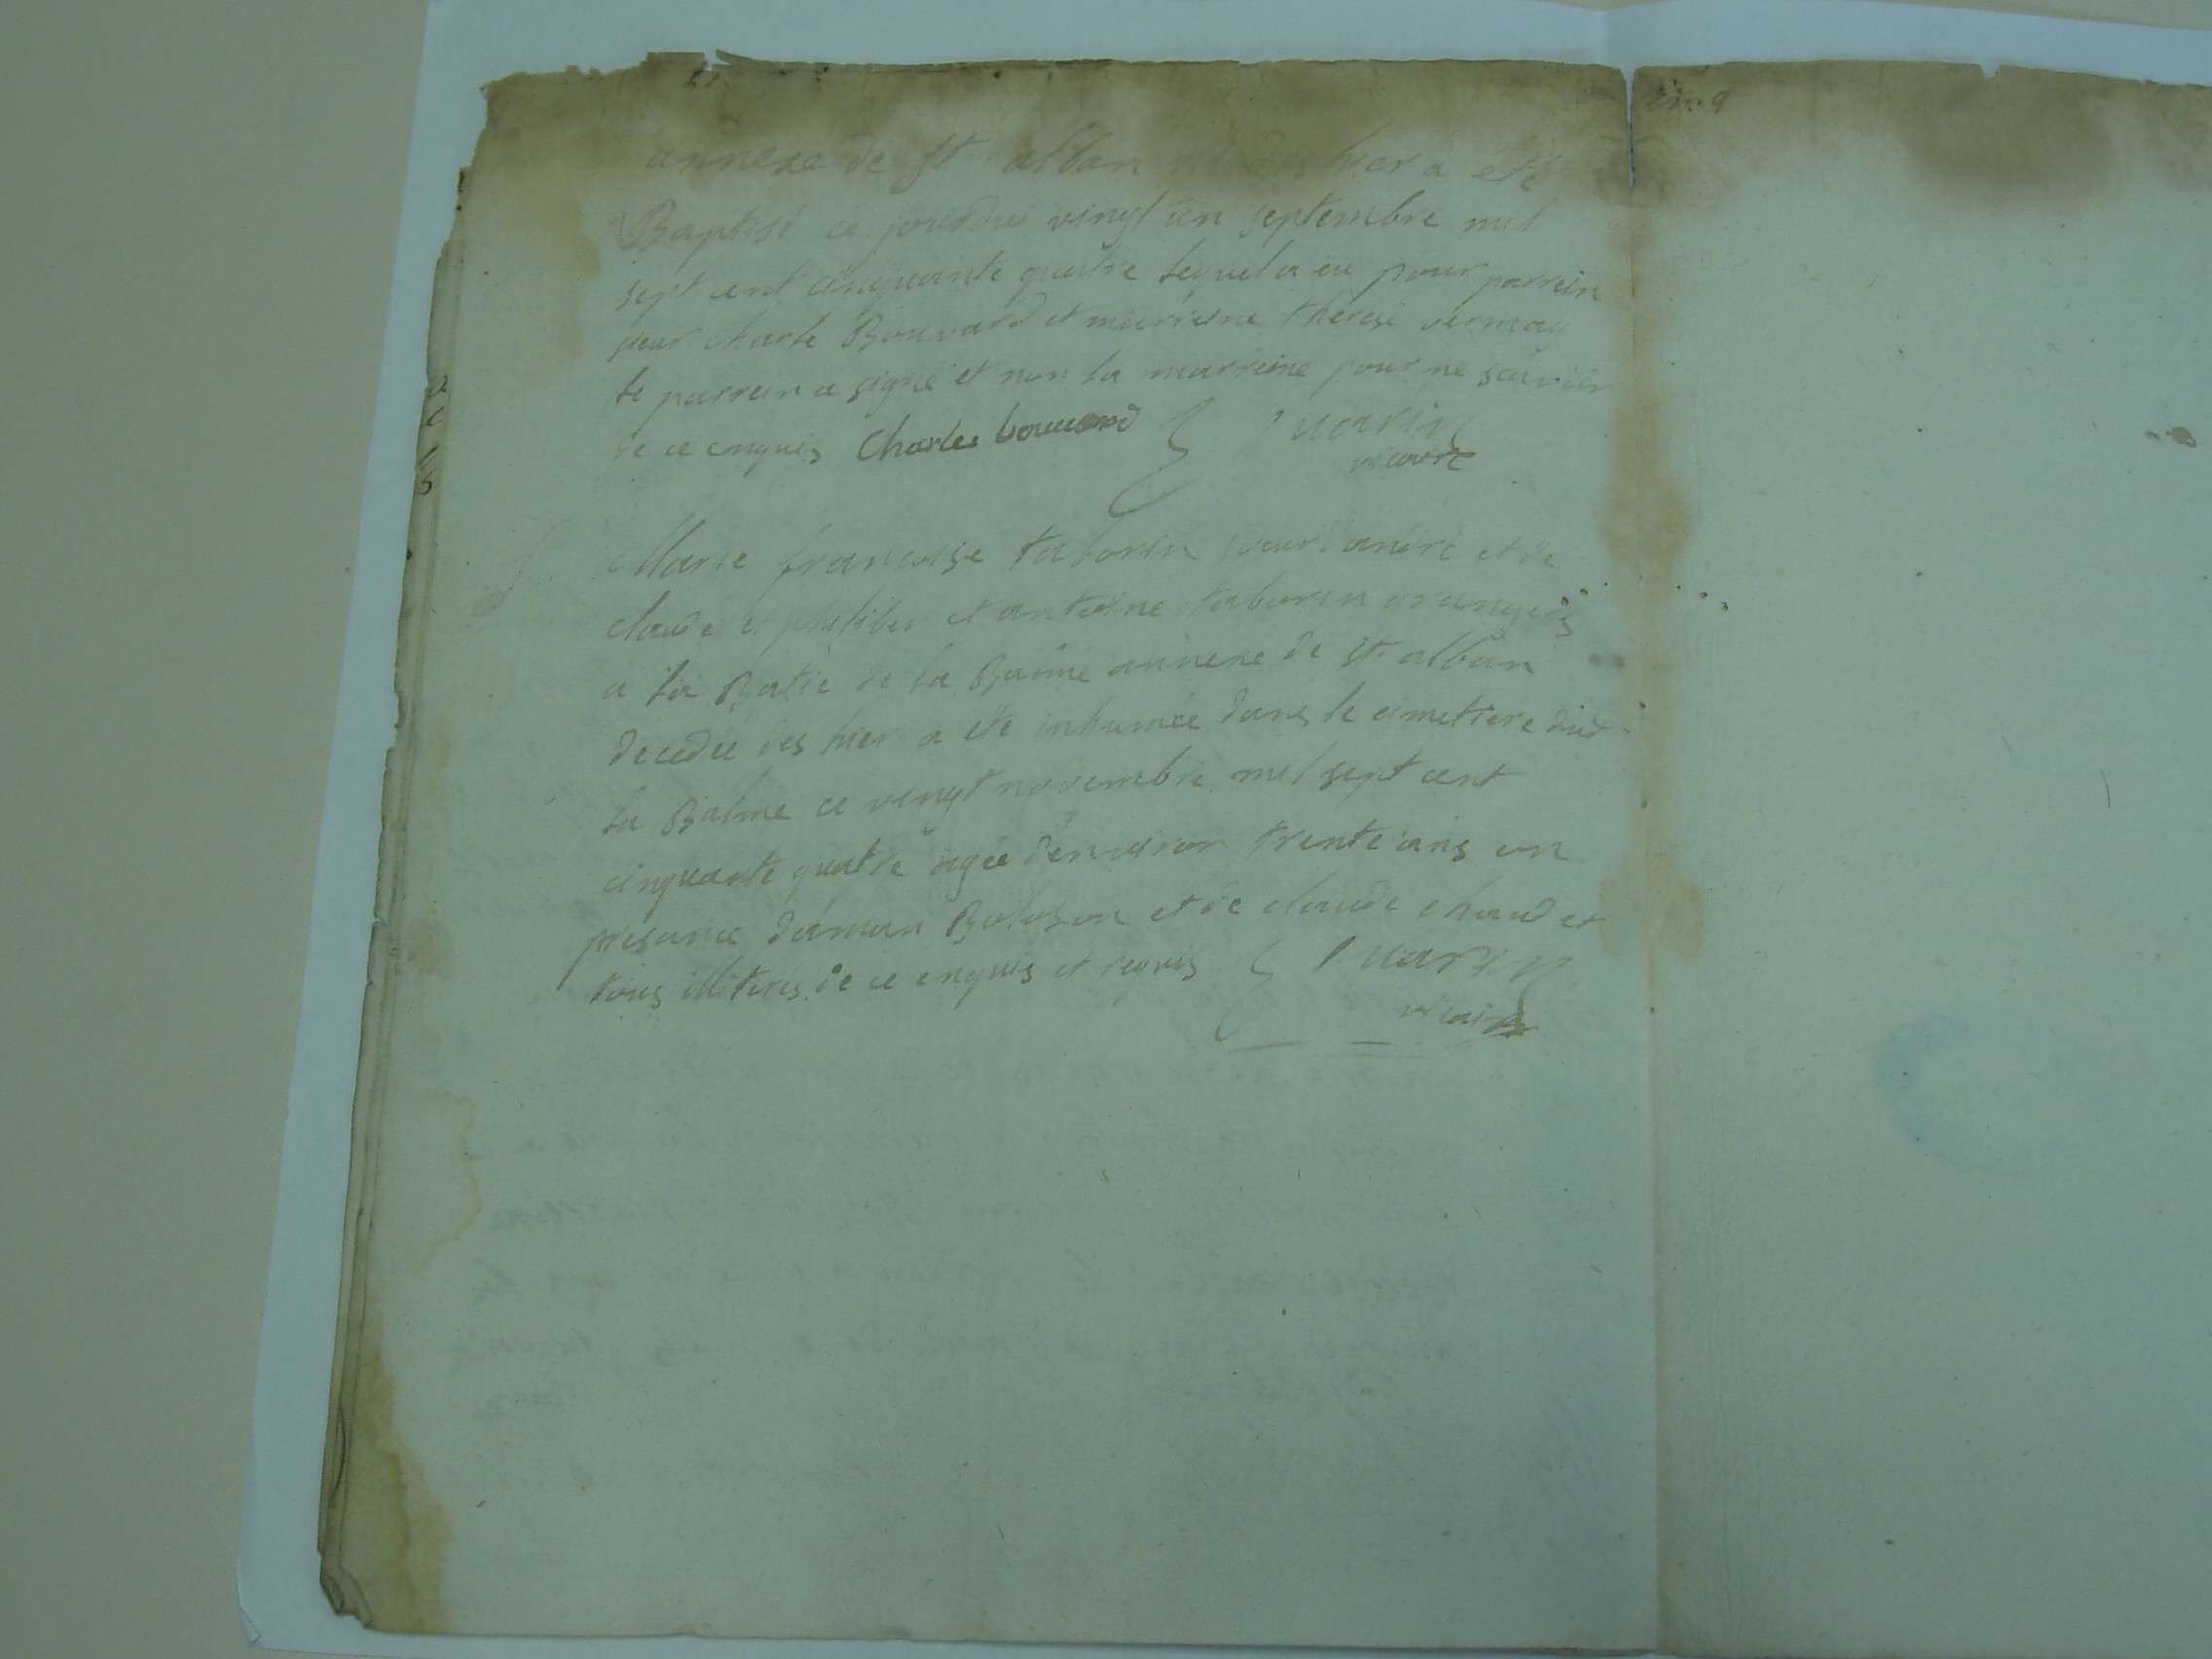 annexe de St. alban né des hier a eté
Baptisé ce jourdui vingt un septembre mil
sept cent cinquante quatre lequel a eu pour parrein
sieur charle Bouvard et marreine therese vermay
le parrein a signé et non la marreine pour ne scavoir
de ce enquis Charles bouuard
vicaire
Marie françoise taborin soeur d'andré et de
claude et antoine taborin
a la Batie de la Baume annexe de St. alban
decedée des hier a été inhumée dans le cimetiere dud
la Balme ce vingt novembre mil sept cent
cinquante quatre agée denviron trente ans en
presance et de claude
tous illiterés de ce enquis et requis
vicaire